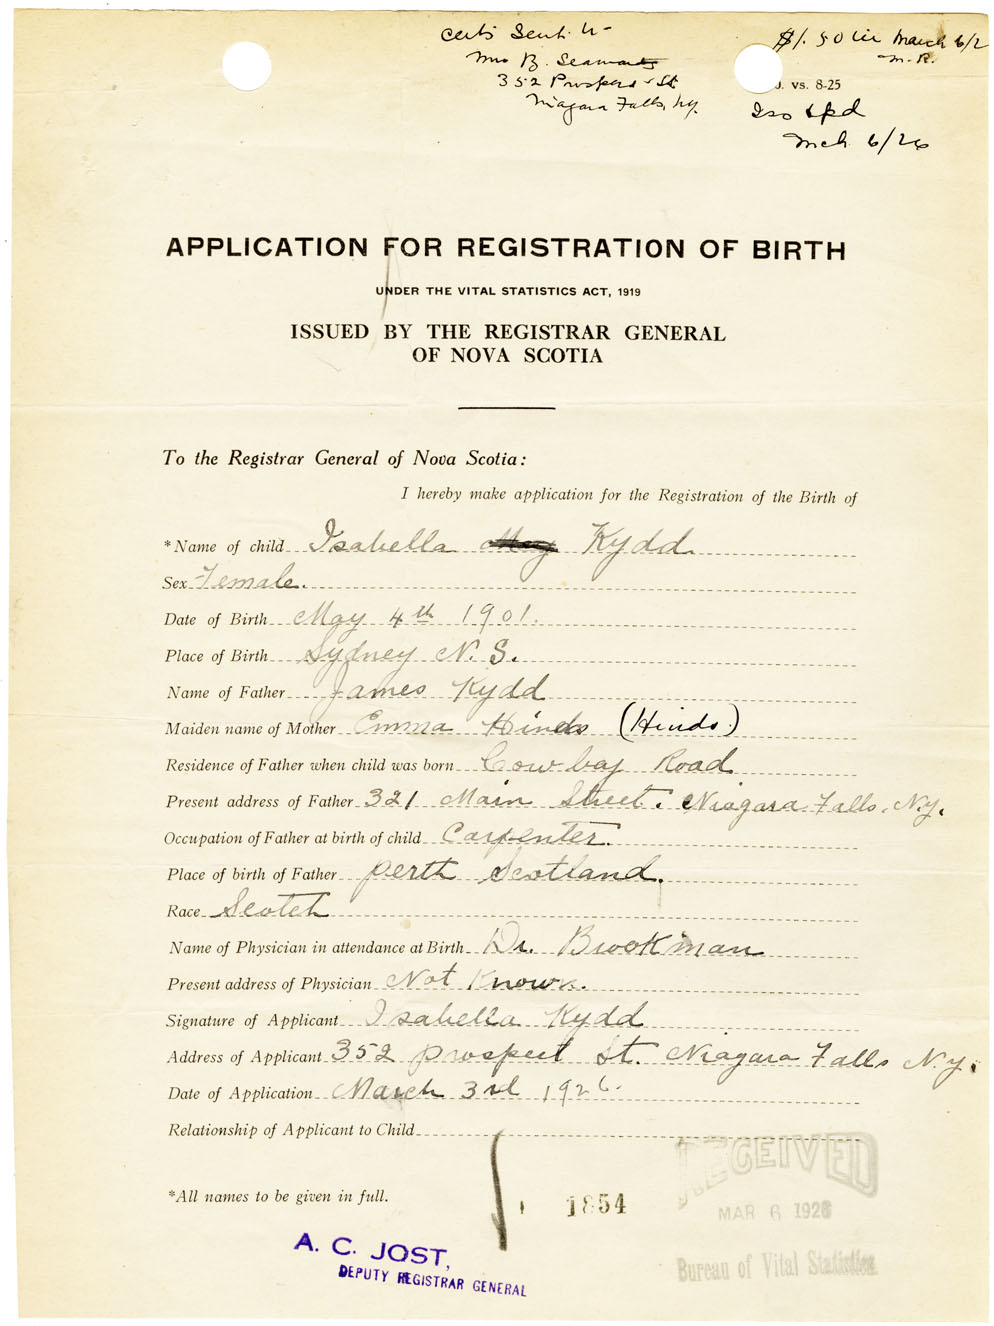 Certs Sent to
Mrs B. Seamans
352 Prospect St
Niagara Falls, N.Y.
$1.50 in March 6/2
M.R.
J. vs. 8-25
Iso & pd
Mch 6/26
APPLICATION FOR REGISTRATION OF BIRTH
UNDER THE VITAL STATISTICS ACT, 1919
ISSUED BY THE REGISTRAR GENERAL
OF NOVA SCOTIA
To the Registrar General of Nova Scotia:
I hereby make application for the Registration of the Birth of
*Name of child Isabella May Kydd
Sex Female.
Date of Birth May 4th 1901.
Place of Birth Sydney N. S.
Name of Father James Kydd
Maiden name of Mother Emma Hinds (Hinds)
Residence of Father when child was born Cow bay Road
Present address of Father 321 Main Street. Niagara Falls. N.Y.
Occupation of Father at birth of child Carpenter.
Place of birth of Father Perth Scotland.
Race Scotch
Name of Physician in attendance at Birth Dr. Brookman
Present address of Physician Not Known.
Signature of Applicant Isabella Kydd
Address of Applicant 352 Prospect St. Niagara Falls N.Y.
Date of Application March 3rd 1926.
Relationship of Applicant to Child
RECEIVED
*All names to be given in full.
1854
MAR 6 1926
A. C. JOST,
DEPUTY REGISTRAR GENERAL
Bureau of Vital Statistics